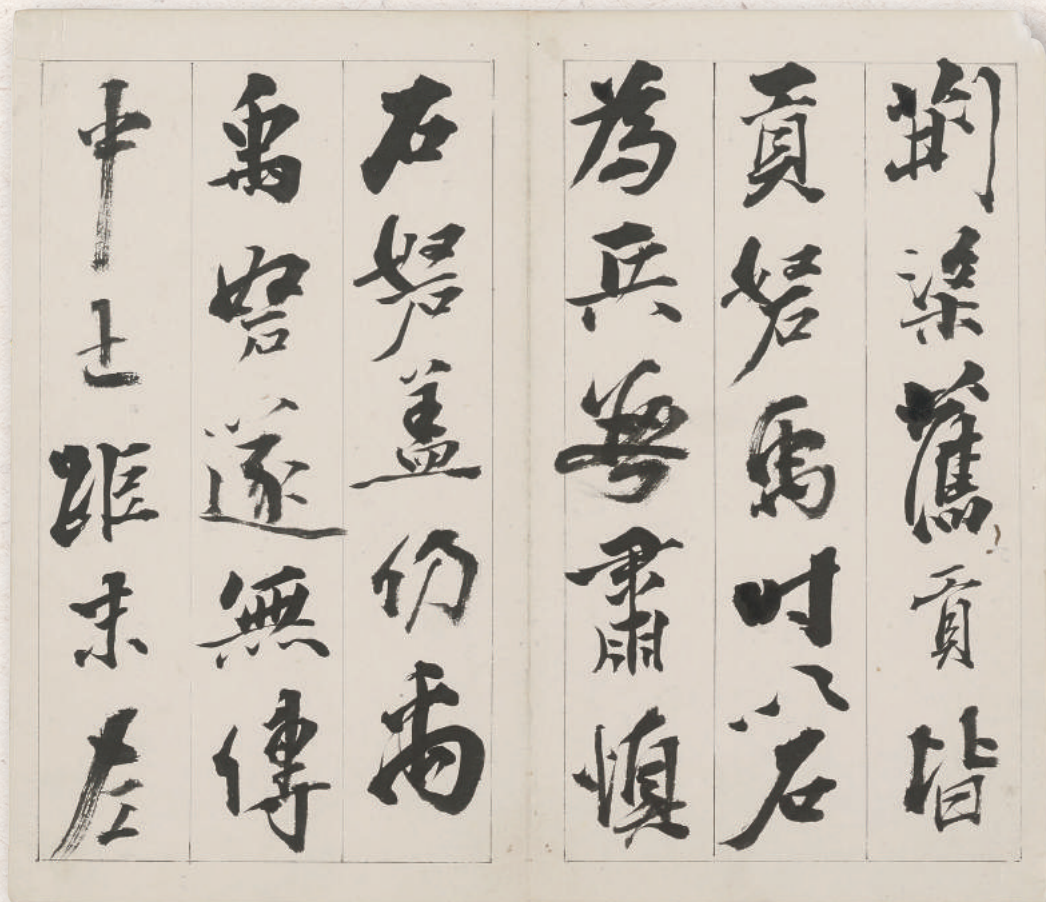 荊梁舊貢皆
貢砮禹时以石
為兵粤肅慎
石砮盖仍禹
禹砮遂無傳
中土雖未左